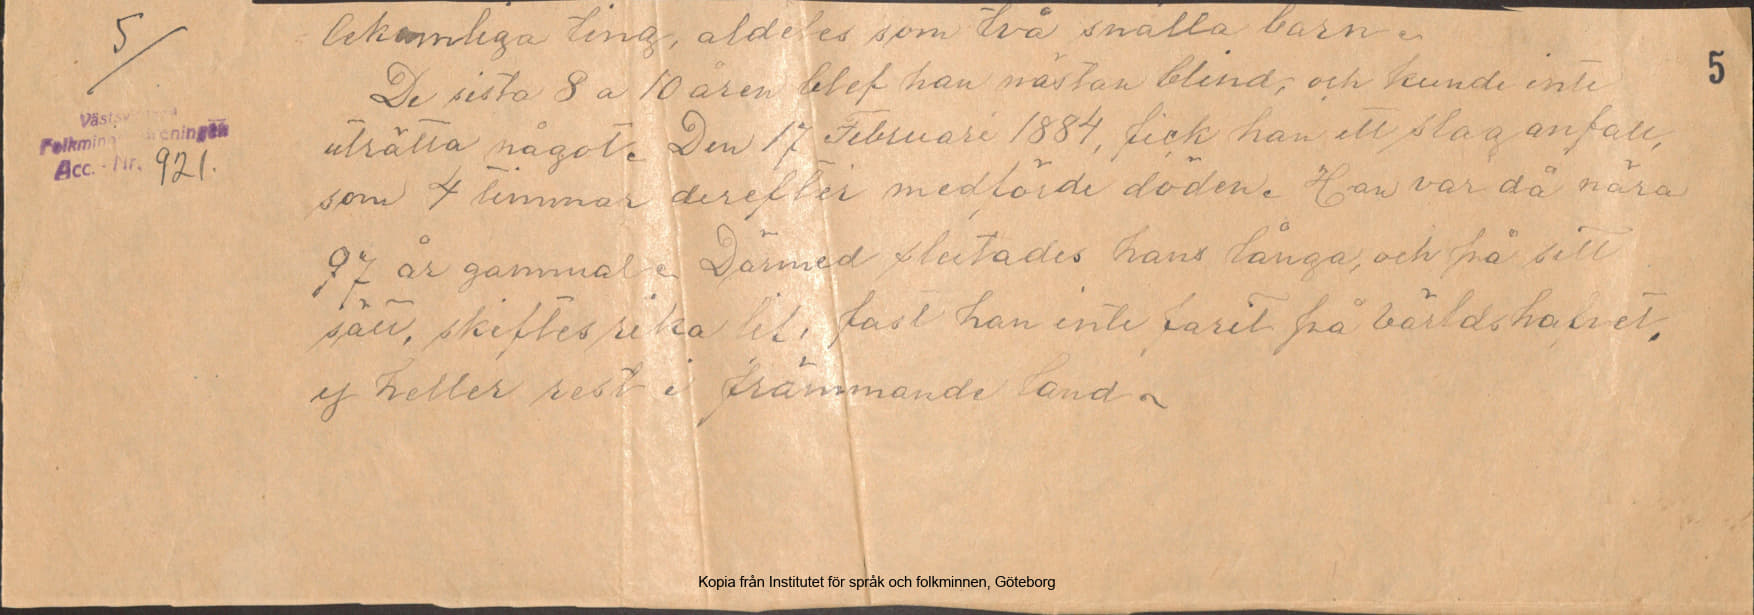 5
5
Västsvenska
Folkminnesföreningen
Acc. - Nr. 921.
lekamliga ting, aldeles som två snälla barn.
De sista 8 a 10 åren blef han nästan blind, och kunde inte
uträtta något. Den 17 Februari 1884, fick han ett slag anfall,
som 4 timmar derefter medförde döden. Han var då nära
97 år gammal. Därmed slutades hans långa, och på sitt
sätt, skiftesrika lif, fast han inte farit på världshafvet,
ej heller rest i främmande land.
Kopia från Institutet för språk och folkminnen, Göteborg